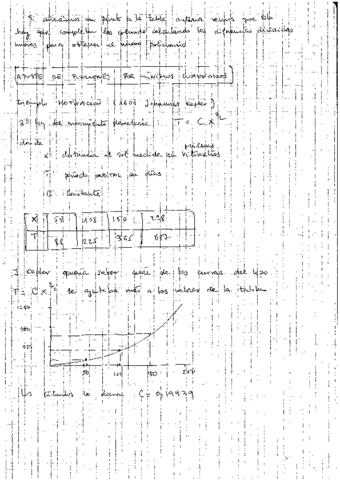 Si añadimos un punto a la tabla anterior vemos que sólo
hay que completar las columnas calculando las diferencias divididas
nuevas para obtener el nuevo polinomio
AJUSTE DE FUNCIONES POR MÍNIMOS CUADRADOS
Ejemplo MOTIVACIÓN (1601 Johannes Kepler)
3ª ley del movimiento planetario: T = C x^3/2
donde
millones
X distancia al sol medida en kilómetros
T: período orbital en días
C: constante
X 58 108 150 228
T 88 225 365 687
J. Kepler quería saber cual de las curvas del tipo
T = C x^3/2 se ajustaba más a los valores de la tabla
50 100 150 200
Los cálculos le dieron C = 0,19939